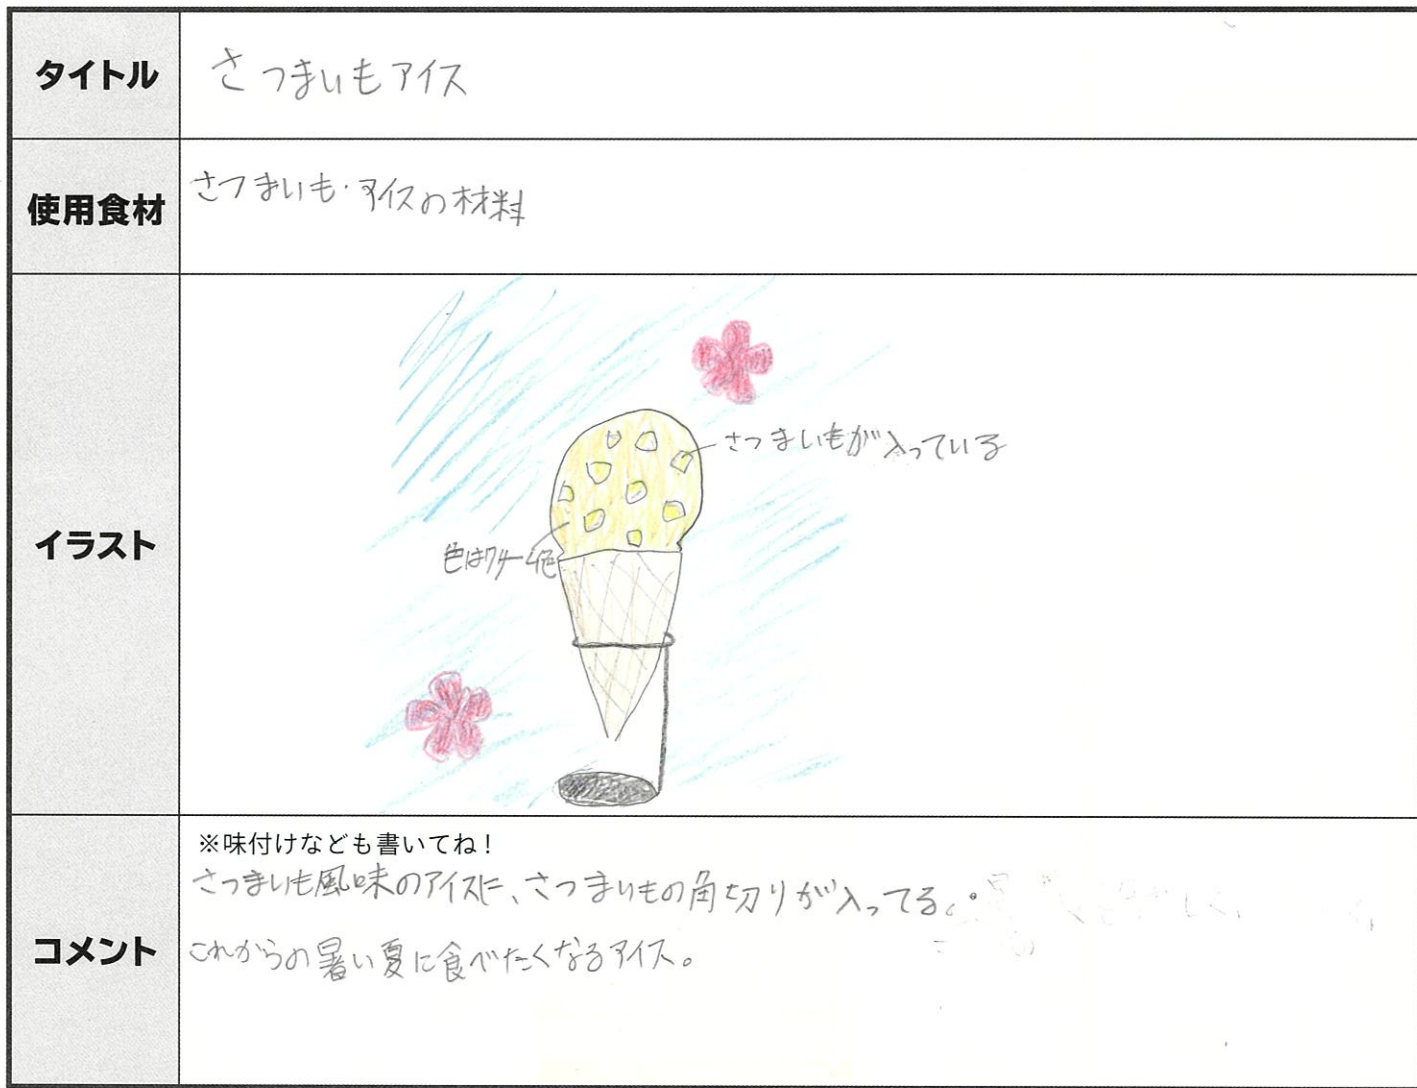 タイトル
さつまいもアイス
使用食材
さつまいも・アイスの材料
イラスト
さつまいもが入っている
色はクリーム色
コメント
※味付けなども書いてね!
さつまいも風味のアイスに、さつまいもの角切りが入ってる。
これからの暑い夏に食べたくなるアイス。